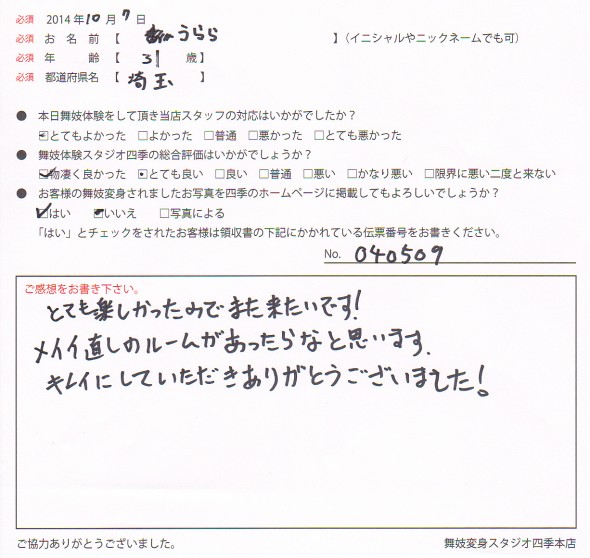 必須 2014年10月7日
必須 お名前【 うらら 】(イニシャルやニックネームでも可)
必須 年齢【 31 歳】
必須 都道府県名【 埼玉 】
● 本日舞妓体験をして頂き当店スタッフの対応はいかがでしたか?
☑とてもよかった □よかった □普通 □悪かった □とても悪かった
● 舞妓体験スタジオ四季の総合評価はいかがでしょうか?
☑物凄く良かった ☑とても良い □良い □普通 □悪い □かなり悪い □限界に悪い二度と来ない
● お客様の舞妓変身されましたお写真を四季のホームページに掲載してもよろしいでしょうか?
☑はい ☑いいえ □写真による
「はい」とチェックをされたお客様は領収書の下記にかかれている伝票番号をお書きください。
No. 040509
ご感想をお書き下さい。
とても楽しかったのでまた来たいです!
メイイ直しのルームがあったらなと思います.
キレイにしていただきありがとうございました!
ご協力ありがとうございました。
舞妓変身スタジオ四季本店